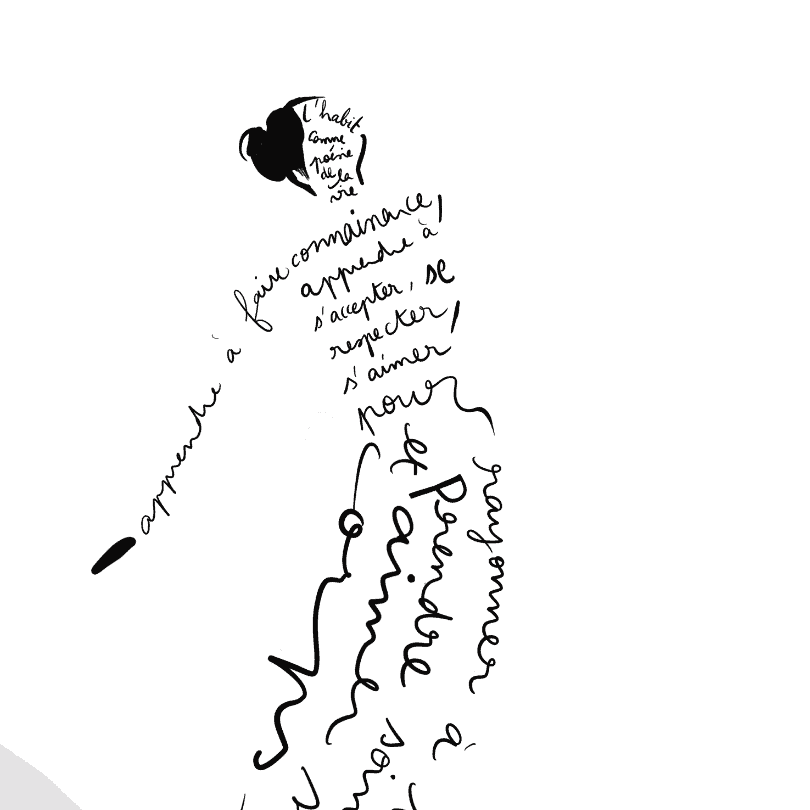 l'habit
comme
poésie
de la
vie
apprendre à faire connaissance,
apprendre à
s'accepter, se
respecter,
s'aimer
pour
rayonner à
et Prendre soin
aimer